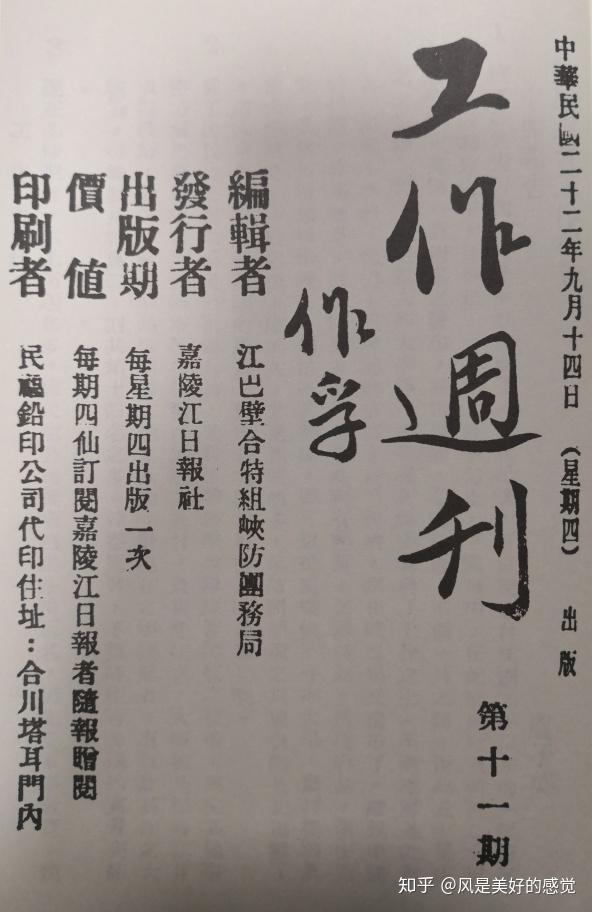 中華民國二十二年九月十四日 (星期四) 出版
工作週刊
第十一期
作孚
編輯者 江巴壁合特組峽防團務局
發行者 嘉陵江日報社
出版期 每星期四出版一次
價值 每期四仙訂閱嘉陵江日報者隨報贈閱
印刷者 民福鉛印公司代印住址：合川塔耳門內
知乎 @风是美好的感觉